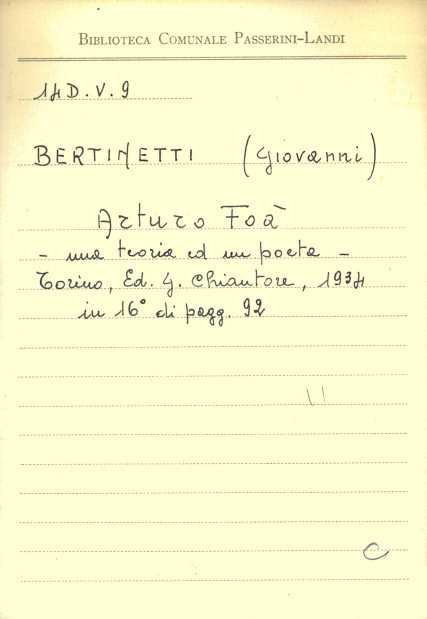 BIBLIOTECA COMUNALE PASSERINI-LANDI
14 D. V. 9
BERTINETTI (Giovanni)
Arturo Foà
- una teoria ed un poeta -
Torino, Ed. G. Chiantore, 1934
in 16° di pagg. 92
C